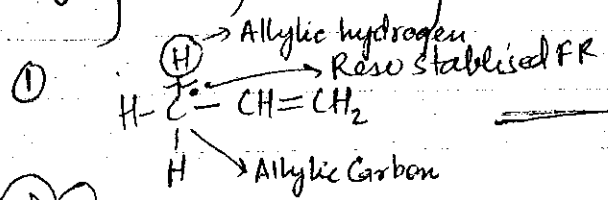 Allylic hydrogen
H
Reso stablised FR
①
H-C-CH=CH₂
H
Allylic Carbon